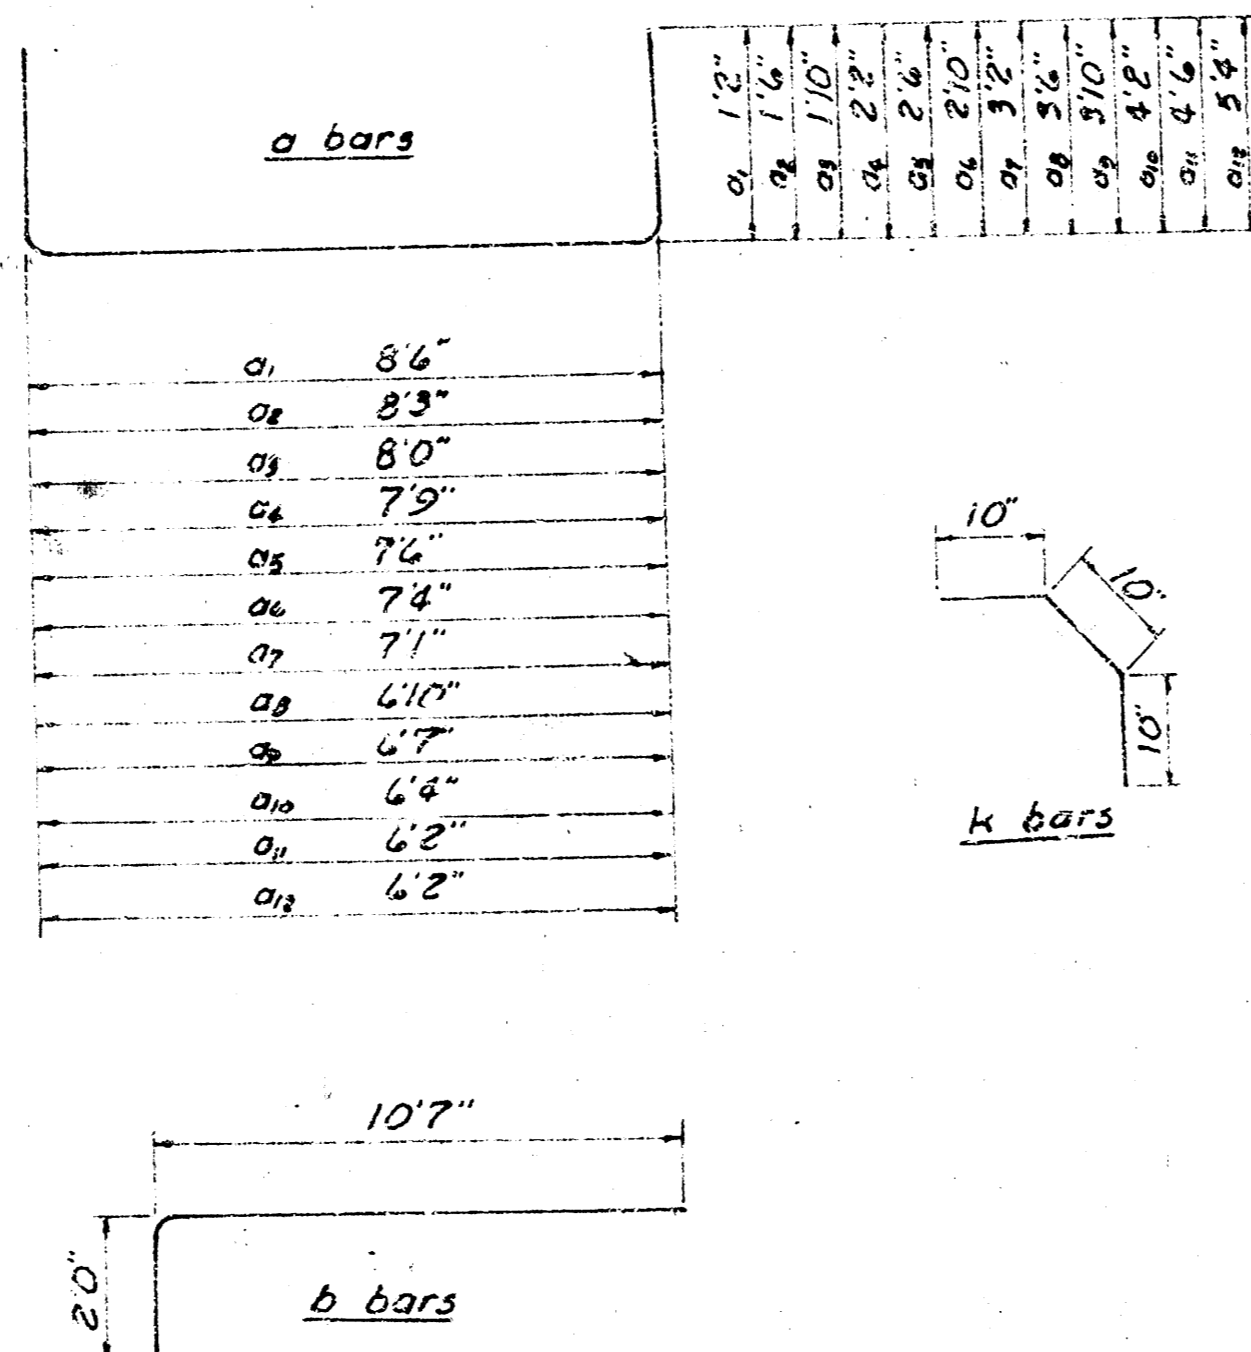 a bars
a1 1'2"
a2 1'6"
a3 1'10"
a4 2'2"
a5 2'6"
a6 2'10"
a7 3'2"
a8 3'6"
a9 3'10"
a10 4'2"
a11 4'6"
a12 5'4"
a1 8'6"
a2 8'3"
a3 8'0"
a4 7'9"
a5 7'6"
a6 7'4"
a7 7'1"
a8 6'10"
a9 6'7"
a10 6'4"
a11 6'2"
a12 6'2"
10"
10"
10"
k bars
10'7"
2'0"
b bars